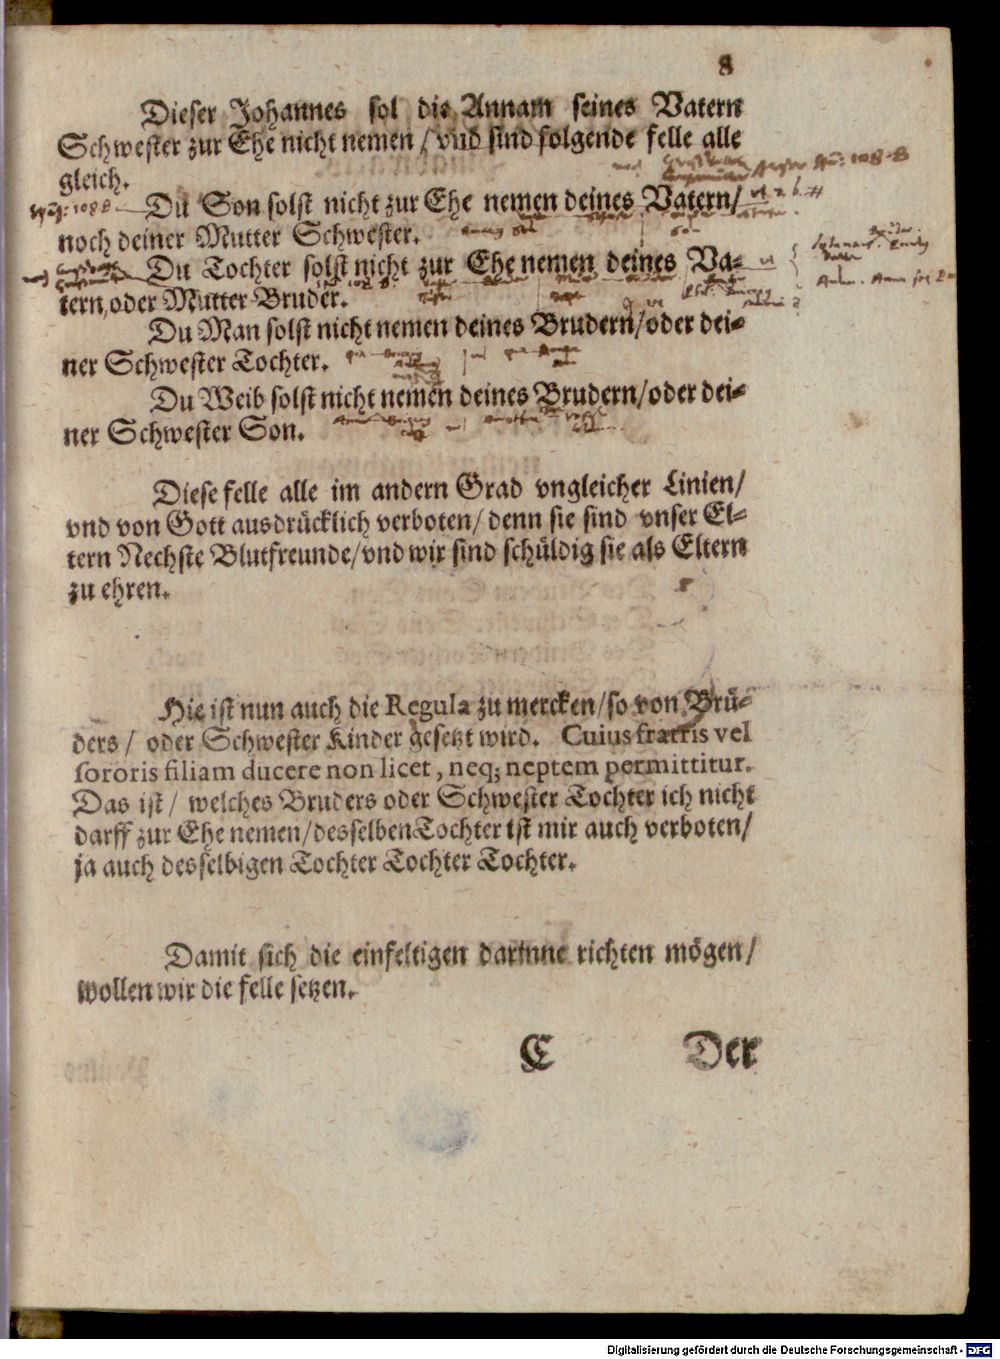 8
Dieser Johannes sol die Annam seines Vatern
Schwester zur Ehe nicht nemen / vnd sind folgende felle alle
gleich.
Du Son solst nicht zur Ehe nemen deines Vatern/
noch deiner Mutter Schwester.
Du Tochter solst nicht zur Ehe nemen deines Va-
tern, oder Mutter Bruder.
Du Man solst nicht nemen deines Brudern/oder dei-
ner Schwester Tochter.
Du Weib solst nicht nemen deines Brudern/oder dei-
ner Schwester Son.
Diese felle alle im andern Grad vngleicher Linien/
vnd von Gott ausdrücklich verboten/ denn sie sind vnser El-
tern Nechste Blutfreunde/vnd wir sind schüldig sie als Eltern
zu ehren.
Hie ist nun auch die Regula zu mercken/so von Brü-
ders/ oder Schwester Kinder gesetzt wird. Cuius fratris vel
sororis filiam ducere non licet, neq; neptem permittitur.
Das ist/ welches Bruders oder Schwester Tochter ich nicht
darff zur Ehe nemen/desselben Tochter ist mir auch verboten/
ja auch desselbigen Tochter Tochter Tochter.
Damit sich die einfeltigen darinne richten mögen/
wollen wir die felle setzen.
C Der
Digitalisierung gefördert durch die Deutsche Forschungsgemeinschaft - DFG